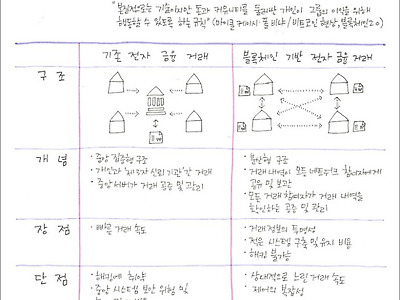 "본질적으로는 기술이지만 돈과 커뮤니티를 둘러싼 개인이 그룹의 이익을 위해
행동할 수 있도록 하는 규칙" (마이클 케이시·폴 비냐 / 비트코인 현상, 블록체인 2.0)
기존 전자 금융 거래
블록체인 기반 전자 금융 거래
구조
개념
· 중앙 집중형 구조
· 개인과 '제3자 신뢰 기관' 간 거래
· 중앙 서버가 거래 공증 및 관리
· 분산형 구조
· 거래 내역이 모든 네트워크 참여자에게
공유 및 보관
· 모든 거래 참여자가 거래 내역을
확인하는 공증 및 관리
장점
· 빠른 거래 속도
· 거래 정보의 투명성
· 적은 시스템 구축 및 유지 비용
· 해킹 불가능
단점
· 해킹에 취약
· 중앙 시스템 보안 위험 및
· 상대적으로 느린 거래 속도
· 제어의 복잡성